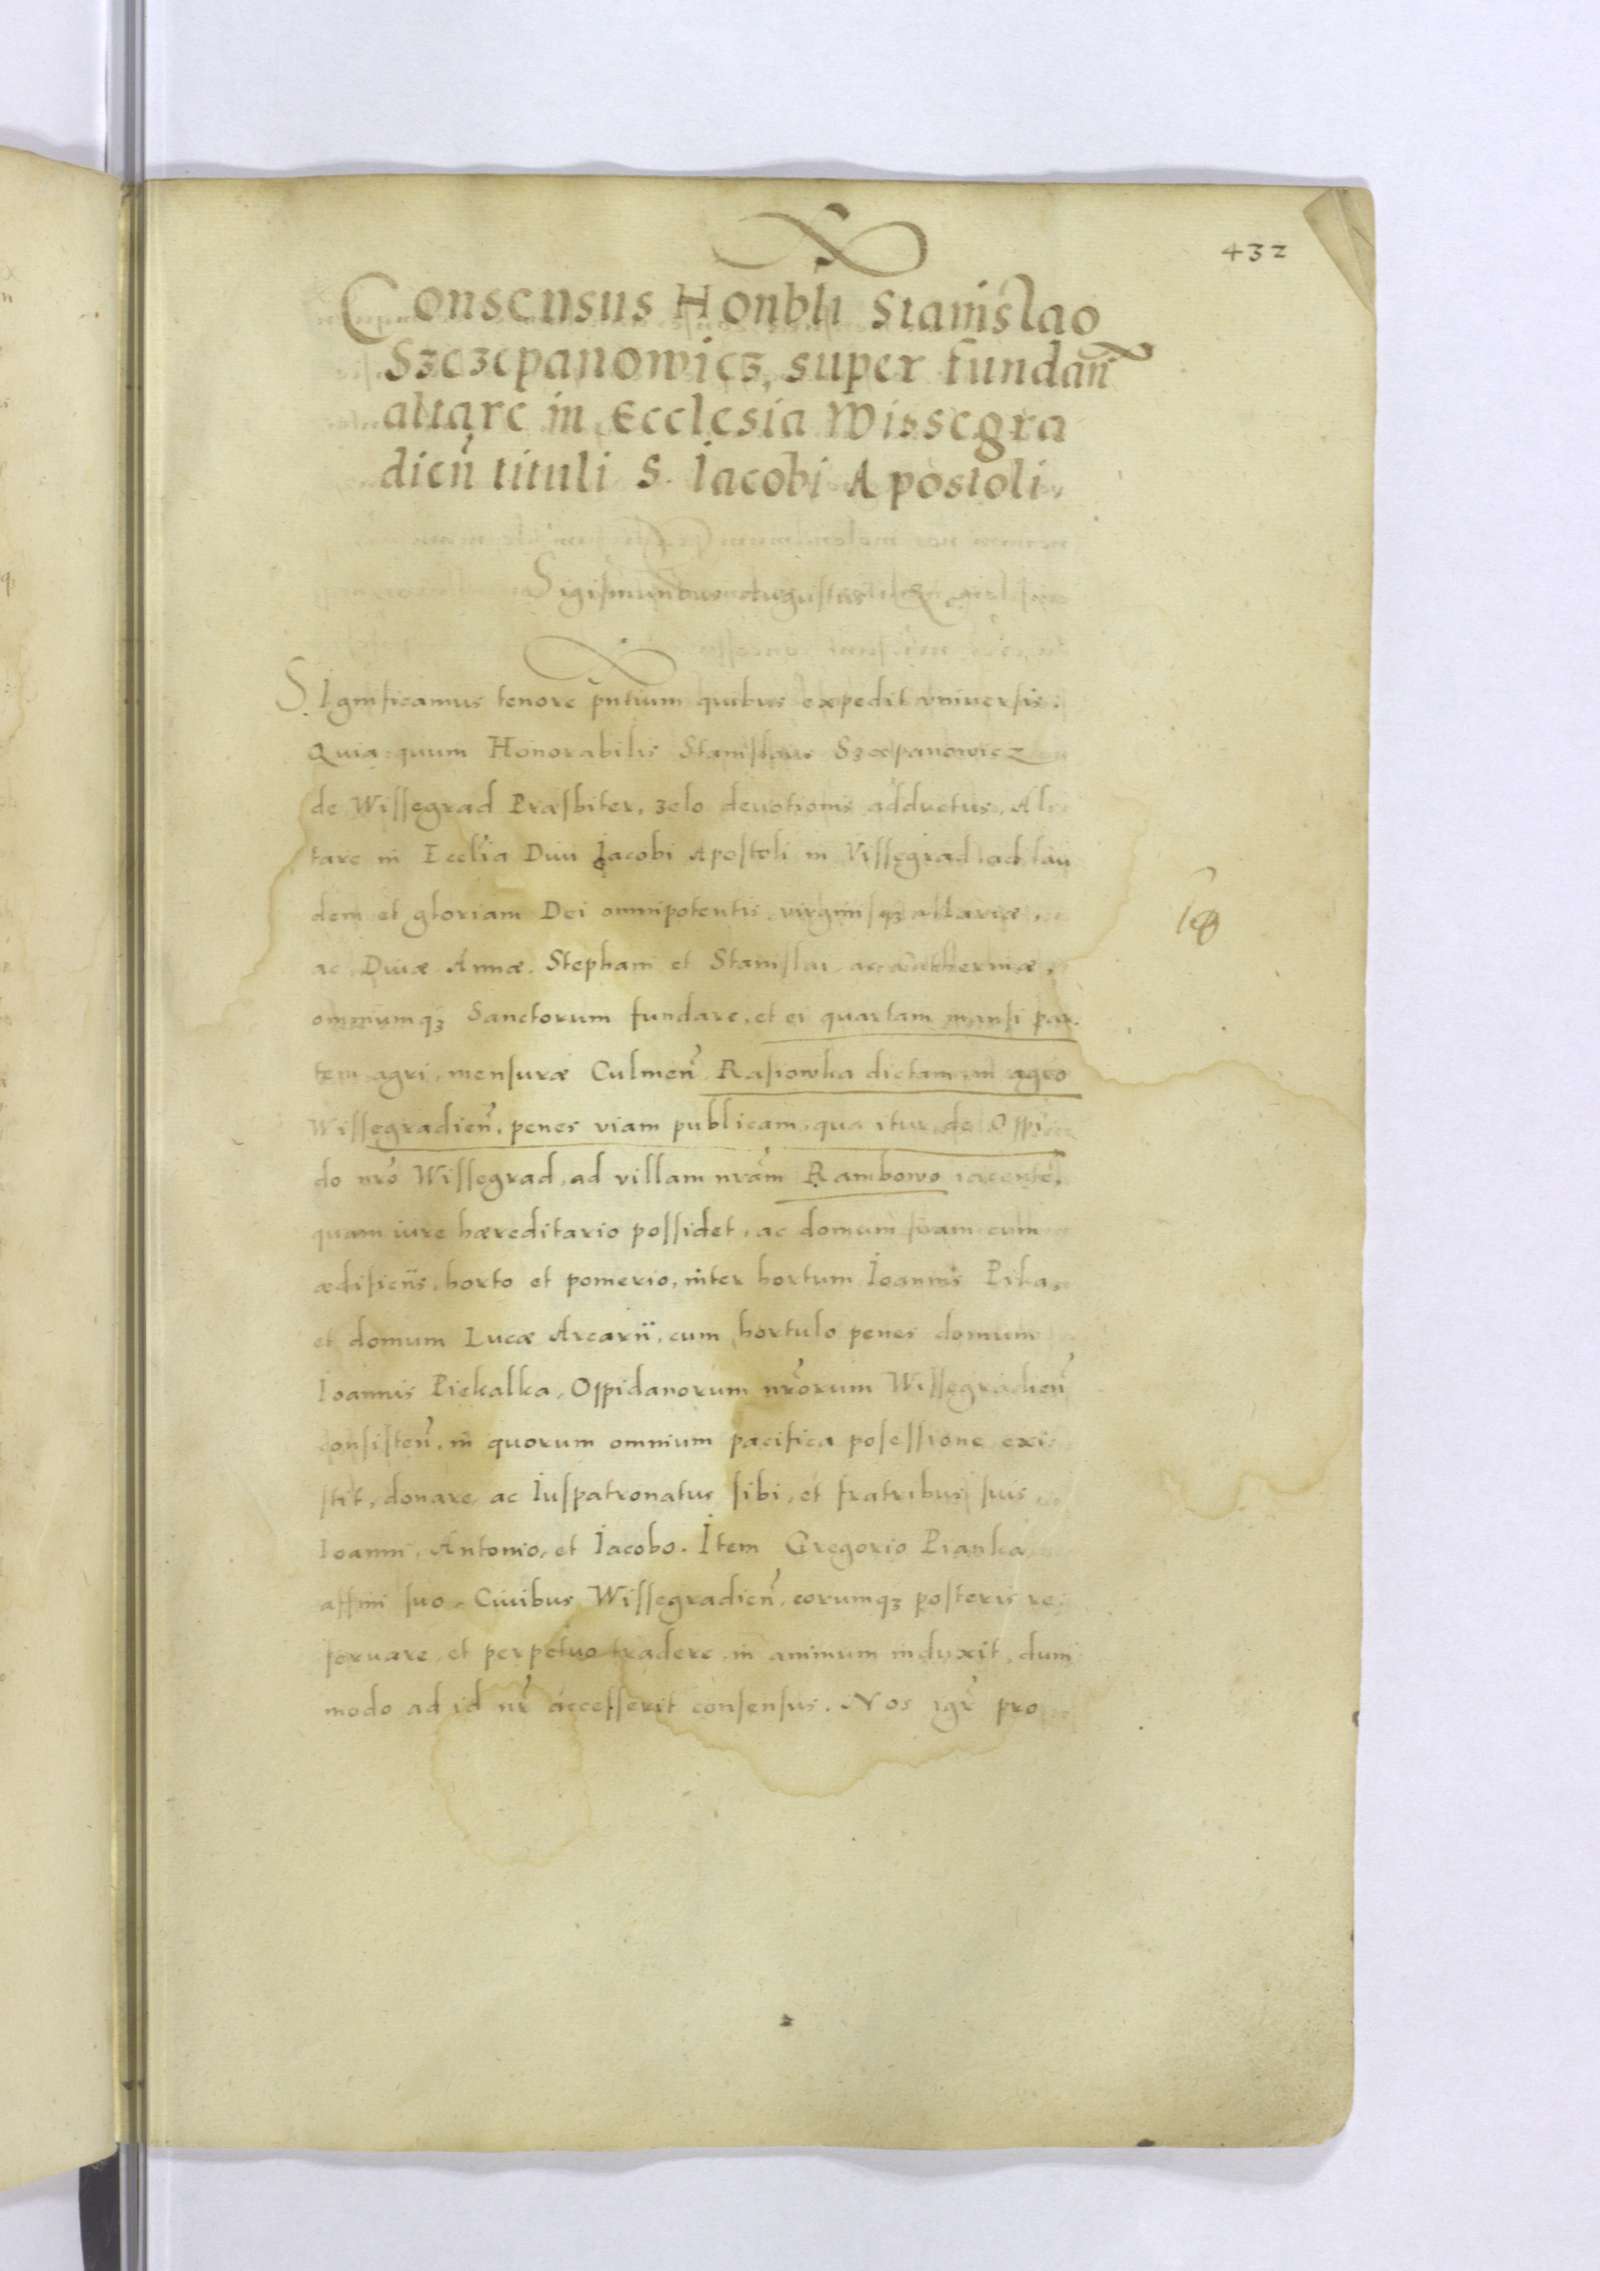 432
Consensus Honbli Stanislao
Szczepanowicz, super fundan̄
altare in Ecclesia Wissegra
dien̄ tituli S. Iacobi Apostoli.
Sigismundus Augustus
Significamus tenore pn̄tium quibus expedit vniuersis:
Quia quum Honorabilis Stanislaus Szczepanowicz
de Wissegrad Præsbiter, zelo deuotionis adductus, Al
tare in Eccl̄ia Diui Jacobi Apostoli in Vissegrad ad lau
dem et gloriam Dei omnipotentis virginisqȝ Mariæ,
ac Diuæ Annæ, Stephani et Stanislai, ac Catherinæ,
omniumqȝ Sanctorum fundare, et ei quartam mansi par
tem agri, mensuræ Culmen̄ Rasiowka dictam in agro
Wissegradien̄, penes viam publicam, qua itur de Oppi
do nr̄o Wissegrad, ad villam nr̄am Rambowo iacente,
quam iure hæreditario possidet, ac domum suam cum
ædificiis, horto et pomerio, inter hortum Ioannis Pika,
et domum Lucæ Arcarii, cum hortulo penes domum
Ioannis Piekalka, Oppidanorum nr̄orum Wissegradien̄
consisten̄, in quorum omnium pacifica posessione exi
stit, donare, ac Iuspatronatus sibi, et fratribus suis
Ioanni, Antonio, et Iacobo. Item Gregorio Pianka
affini suo, Ciuibus Wissegradien̄, eorumqȝ posteris re
seruare, et perpetuo tradere in animum induxit, dum
modo ad id nr̄ accesserit consensus. Nos igr̄ pro